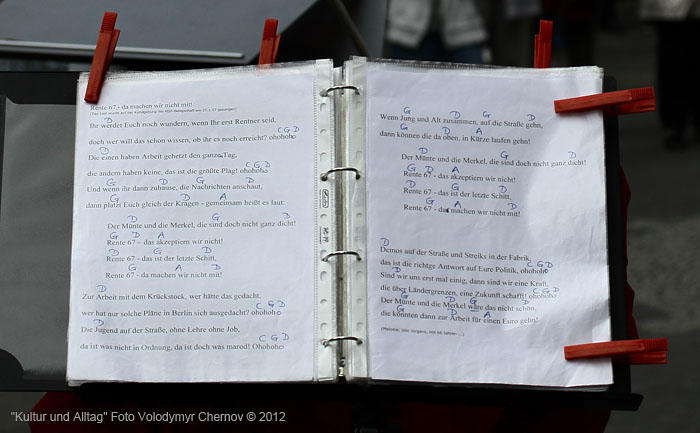 Rente 67 - da machen wir nicht mit!
D
Ihr werdet Euch noch wundern, wenn Ihr erst Rentner seid,
C G D
doch wer will das schon wissen, ob ihr es noch erreicht? ohohoho
D
Die einen haben Arbeit gehetzt den ganze Tag,
C G D
die andern haben keine, das ist die größte Plag! ohohoho
G G D
Und wenn ihr dann zuhause, die Nachrichten anschaut,
G D A
dann platzt Euch gleich der Kragen - gemeinsam heißt es laut:
D G D
Der Münte und die Merkel, die sind doch nicht ganz dicht!
G D A
Rente 67 – das akzeptiern wir nicht!
D G D
Rente 67 - das ist der letzte Schritt,
G A D
Rente 67 - da machen wir nicht mit!
D
Zur Arbeit mit dem Krückstock, wer hätte das gedacht,
C G D
wer hat nur solche Pläne in Berlin sich ausgedacht? ohohoho
D
Die Jugend auf der Straße, ohne Lehre ohne Job,
C G D
da ist was nicht in Ordnung, da ist doch was marod! Ohohoho
G D G
Wenn Jung und Alt zusammen, auf die Straße gehn,
G D A
dann können die da oben, in Kürze laufen gehn!
D G D
Der Münte und die Merkel, die sind doch nicht ganz dicht!
G D A
Rente 67 - das akzeptiern wir nicht!
D G D
Rente 67 - das ist der letzte Schritt,
G A D
Rente 67 - da machen wir nicht mit!
D
Demos auf der Straße und Streiks in der Fabrik,
C G D
das ist die richtge Antwort auf Eure Politik, ohohoho
D
Sind wir uns erst mal einig, dann sind wir eine Kraft,
C G D
die über Ländergrenzen, eine Zukunft schafft! ohohoho
G D G
Der Münte und die Merkel wäre das nicht schön,
G D A
die könnten dann zur Arbeit für einen Euro gehn!
"Kultur und Alltag" Foto Volodymyr Chernov © 2012